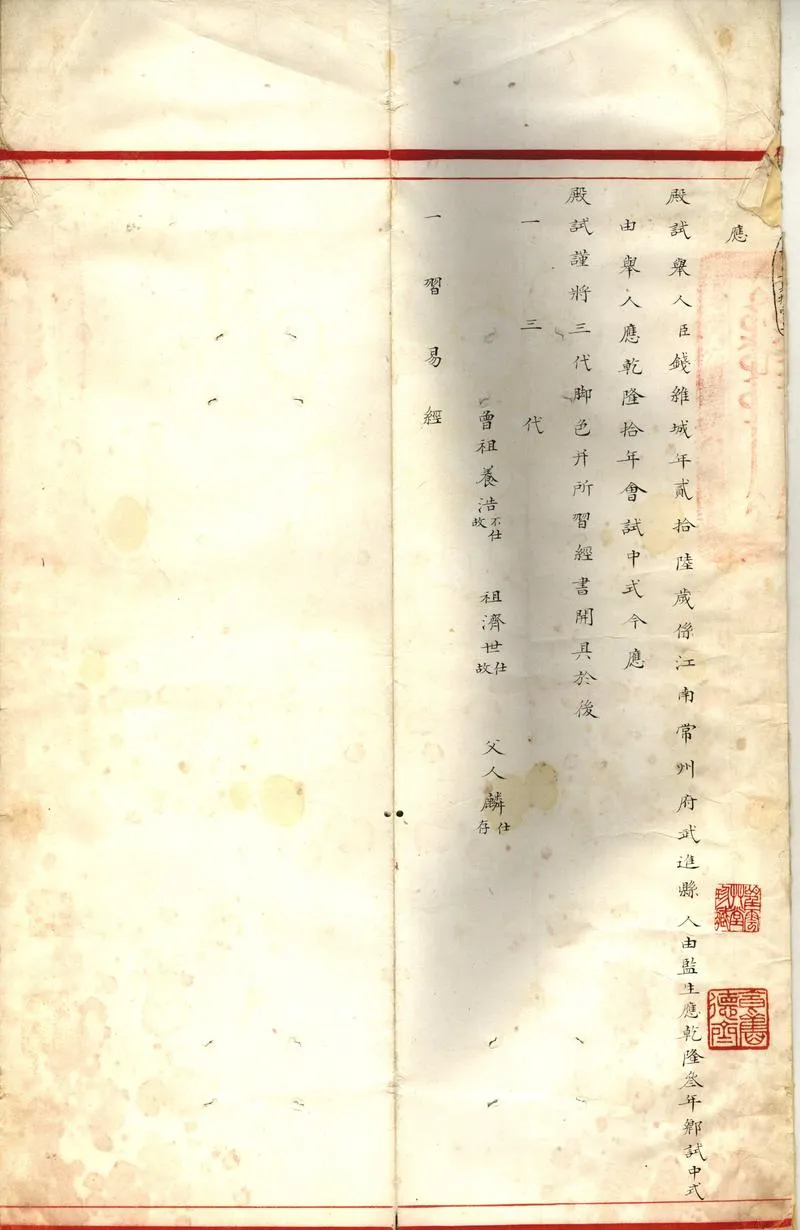 應
殿試舉人臣錢維城年貳拾陸歲係江南常州府武進縣人由監生應乾隆叄年鄉試中式
由舉人應乾隆拾年會試中式今應
殿試謹將三代脚色并所習經書開具於後
一三代
曾祖養浩不仕故 祖濟世仕故 父人麟仕存
一習易經